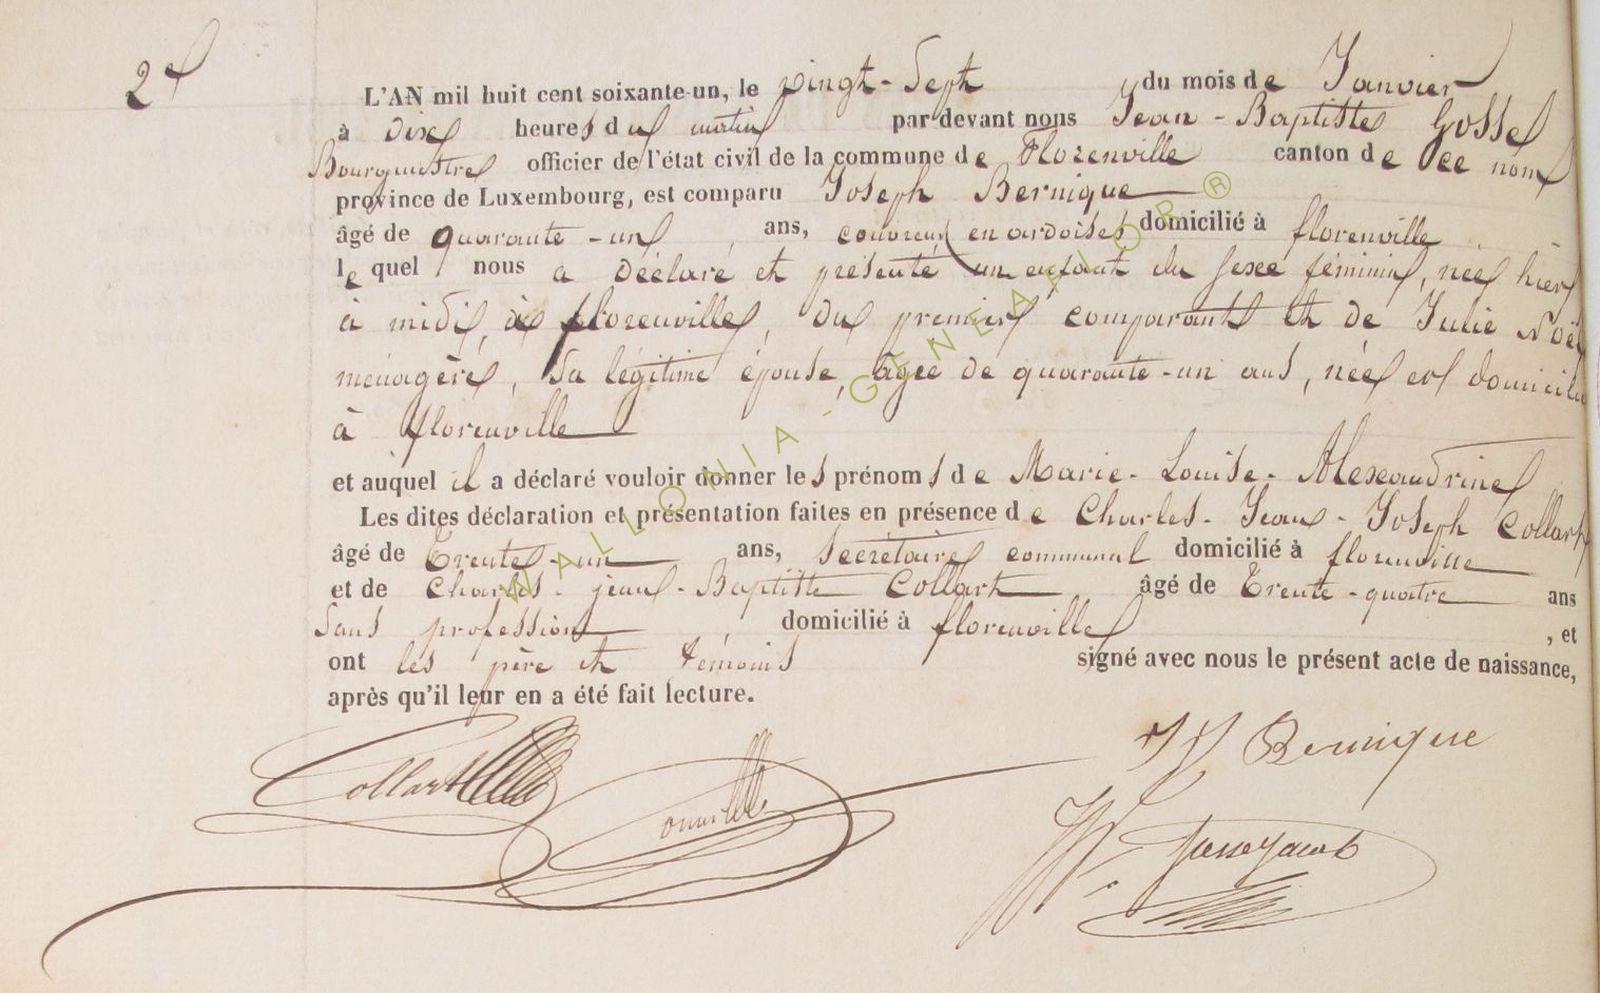 2e
L'AN mil huit cent soixante-un, le vingt-sept du mois de Janvier
à dix heures du matin par devant nous Jean-Baptiste Gosse
Bourgmestre officier de l'état civil de la commune de Florenville canton de ce nom
province de Luxembourg, est comparu Joseph Bernique
âgé de quarante-un ans, couvreur en ardoises domicilié à florenville
lequel nous a déclaré et présenté un enfant du sexe féminin, née hier
à midi, à florenville, du premier comparant et de Julie Noël
ménagère, sa légitime épouse, âgée de quarante-un ans, née et domiciliée
à florenville
et auquel il a déclaré vouloir donner les prénoms de Marie-Louise-Alexandrine
Les dites déclaration et présentation faites en présence de Charles-Jean-Joseph Collart
âgé de Trente-un ans, secrétaire communal domicilié à florenville
et de Charles-jean-Baptiste Collart âgé de Trente-quatre ans
sans profession, domicilié à florenville, et
ont les père et témoins signé avec nous le présent acte de naissance,
après qu'il leur en a été fait lecture.
Bernique
Collart
WALLONIA-GENEAPHOR®